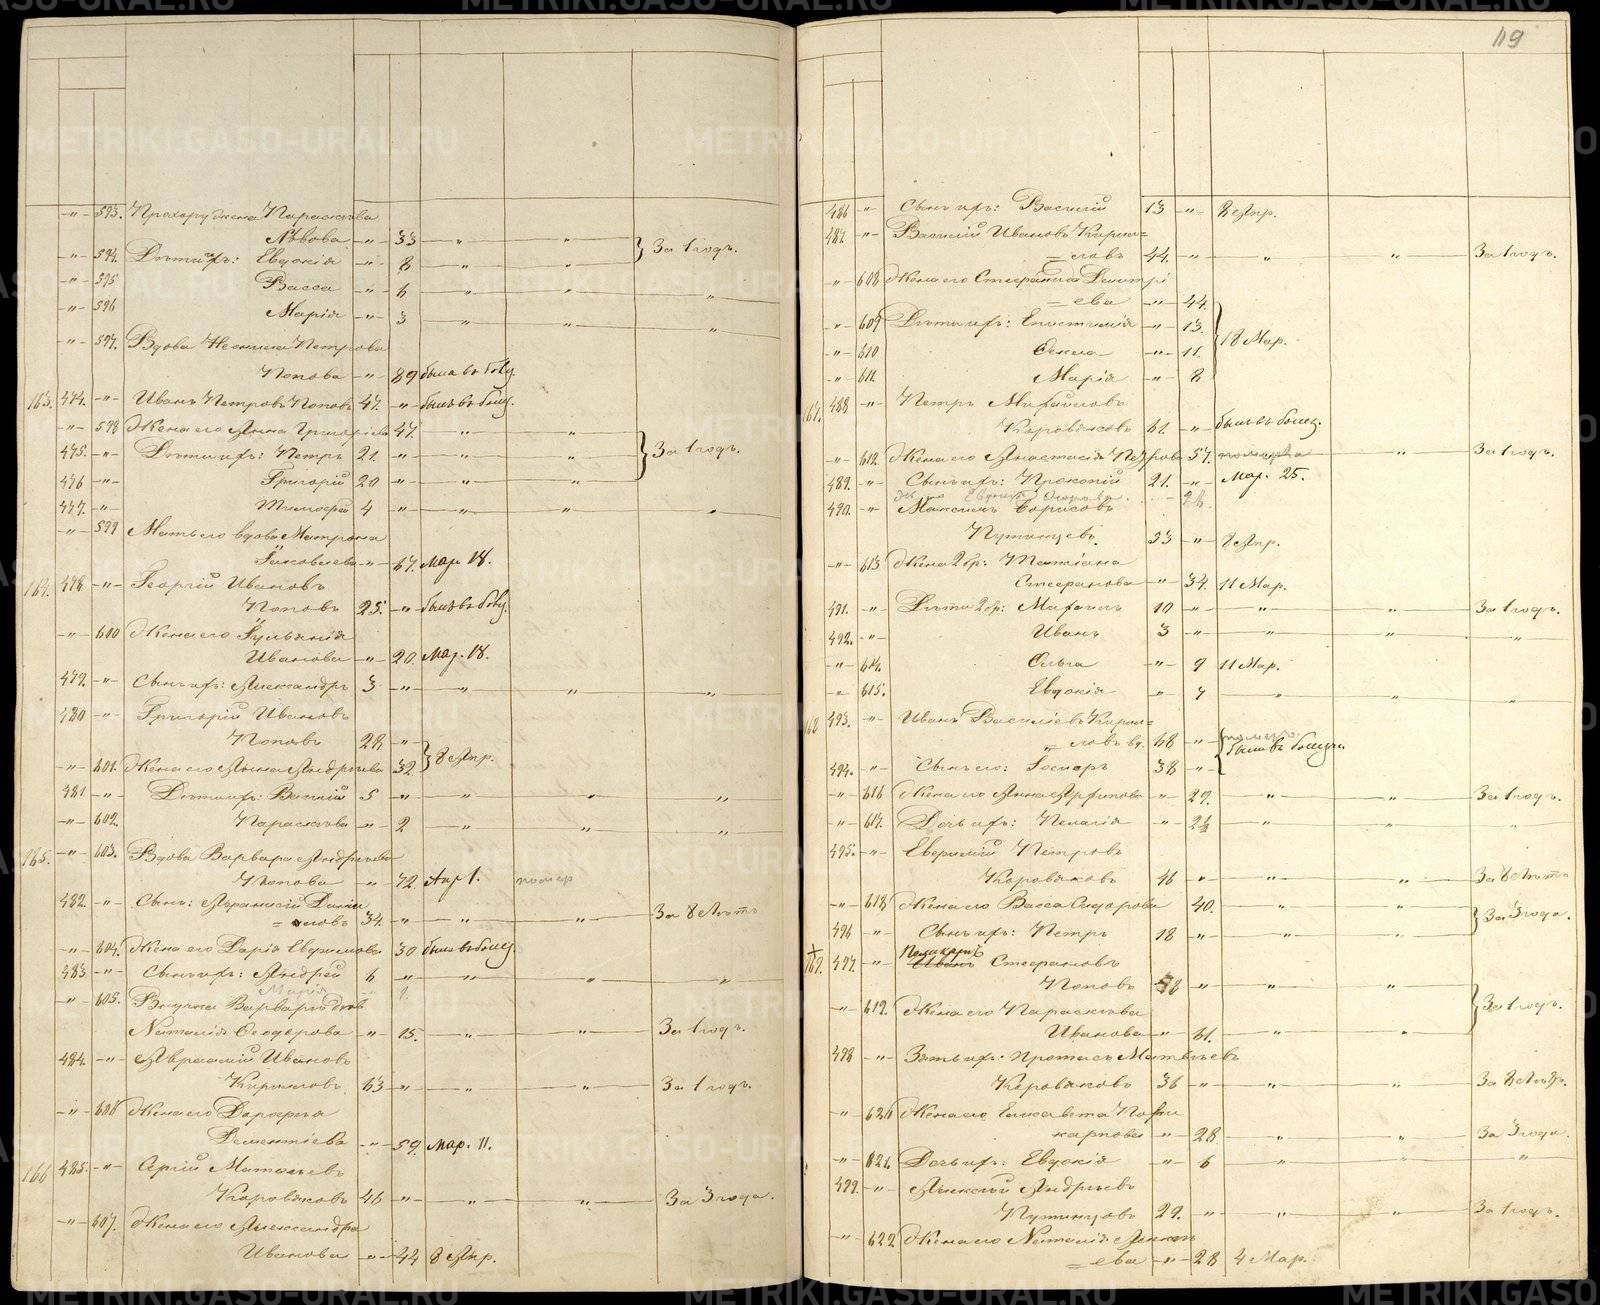 -"- 593. Прохору жена Парасковья
Львова -"- 33 " "
-"- 594. Дети ихъ: Евдокія -"- 8 " " } За 1 годъ.
-"- 595 Васса -"- 6 " " "
-"- 596 Марія -"- 3 " " "
-"- 597. Вдова Петрова
Попова -"- 89 была въ
163. 474. -"- Иванъ Петровъ Поповъ 47. -"- былъ въ
-"- 598 Жена его Анна Григорьева 47. " "
475. -"- Дети ихъ: Петръ 21. -"- " " } За 1 годъ.
476 -"- Григорій 20 -"- " "
477. -"- Тимофей 4 -"- " " "
-"- 599 Мать его вдова Матрона
Яковлева -"- 67. Мар. 18.
164. 478 -"- Георгій Ивановъ
Поповъ 25. -"- былъ въ
-"- 600 Жена его Іульянія
Иванова -"- 20. Мар. 18.
479. -"- Сынъ ихъ: Александръ 3 -"- " " "
480 -"- Григорій Ивановъ
Поповъ 28 -"-
-"- 601. Жена его Анна Андреева 32 } 8 Апр.
481 -"- Дети ихъ: Василій 5 -"- " " "
-"- 602. Парасковья -"- 2 " " "
165. -"- 603. Вдова Варвара Андреева
Попова -"- 72. Апр 1. помер
482. -"- Сынъ: Афанасій Дани
= ловъ 34. -"- " " За 8 летъ
-"- 604. Жена его Дарія Евфимова 30 была въ
483 -"- Сынъ ихъ: Андрей 6 -"- " " "
Марія 1.
-"- 605. Внучка Варвары
Наталія Феодорова " 15. " " За 1 годъ.
484. -"- Аврамій Ивановъ
Кириловъ 63 -"- " " За 1 годъ.
-"- 606 Жена его Дарофея
Дементіева -"- 59. Мар. 11.
166 485. -"- Сергій Матвеевъ
Коровяковъ 46 -"- " " За 3 года.
-"- 607. Жена его Александра
Иванова -"- 44 8 Апр.
119
486 -"- Сынъ ихъ: Василій 13 -"- 8 Апр.
487 -"- Василій Ивановъ Кири=
= ловъ 44. -"- " " За 1 годъ.
-"- 608 Жена его Стефанида Димитрі
= ева -"- 44.
-"- 609 Дети ихъ: Епистимія -"- 13.
-"- 610 Фекла -"- 11. } 18 Мар.
-"- 611. Марія -"- 8
167. 488 -"- Петръ Михайловъ
Коровяковъ 61. -"- былъ въ болез.
-"- 612. Жена его Анастасія Петрова 57. " За 1 годъ.
489. -"- Сынъ ихъ: Прокопій 21. -"- Мар. 25.
490. -"- Максимъ Борисовъ
Путинцевъ. 33 -"- 8 Апр.
-"- 613 Жена 2 бр: Татіана
Стефанова -"- 34. 11 Мар.
491. -"- Дети 2 бр: Михаилъ 10 -"- " " За 1 годъ.
492. -"- Иванъ 3 -"- " " "
-"- 614. Ольга -"- 9 11 Мар.
-"- 615. Евдокія " 7 " " "
168 493. -"- Иванъ Василіевъ Кири=
= ловъ вд. 68 -"-
былъ въ болезн.
494. -"- Сынъ его: Гаспаръ 38 -"-
-"- 616 Жена его Анна -"- 29. " " За 1 годъ.
-"- 617. Дочь ихъ: Пелагія -"- " " "
495. -"- Евфимій Петровъ
Коровяковъ 46 " " " За 8 летъ
-"- 618 Жена его Васса Сидорова 40. " " } За 3 года.
496 -"- Сынъ ихъ: Петръ 18 -"- " "
+ Поликарпъ
169. 497. -"- Иванъ Стефановъ
Поповъ 58 -"- " "
-"- 619. Жена его Парасковья } За 1 годъ.
Иванова -"- 61. " "
498 -"- Зять ихъ: Протасъ Матвеевъ
Коровяковъ 36 " " " За 2 лет.
-"- 620 Жена его Елисавета Поли
карпова -"- 28 " " За 3 года.
-"- 621. Дочь ихъ: Евдокія -"- 6 " " "
499. -"- Алексій Андреевъ
Путинцовъ 29. " " " За 1 годъ.
-"- 622 Жена его Наталія
= ева -"- 28 4 Мар.
METRIKI.GASO-URAL.RU